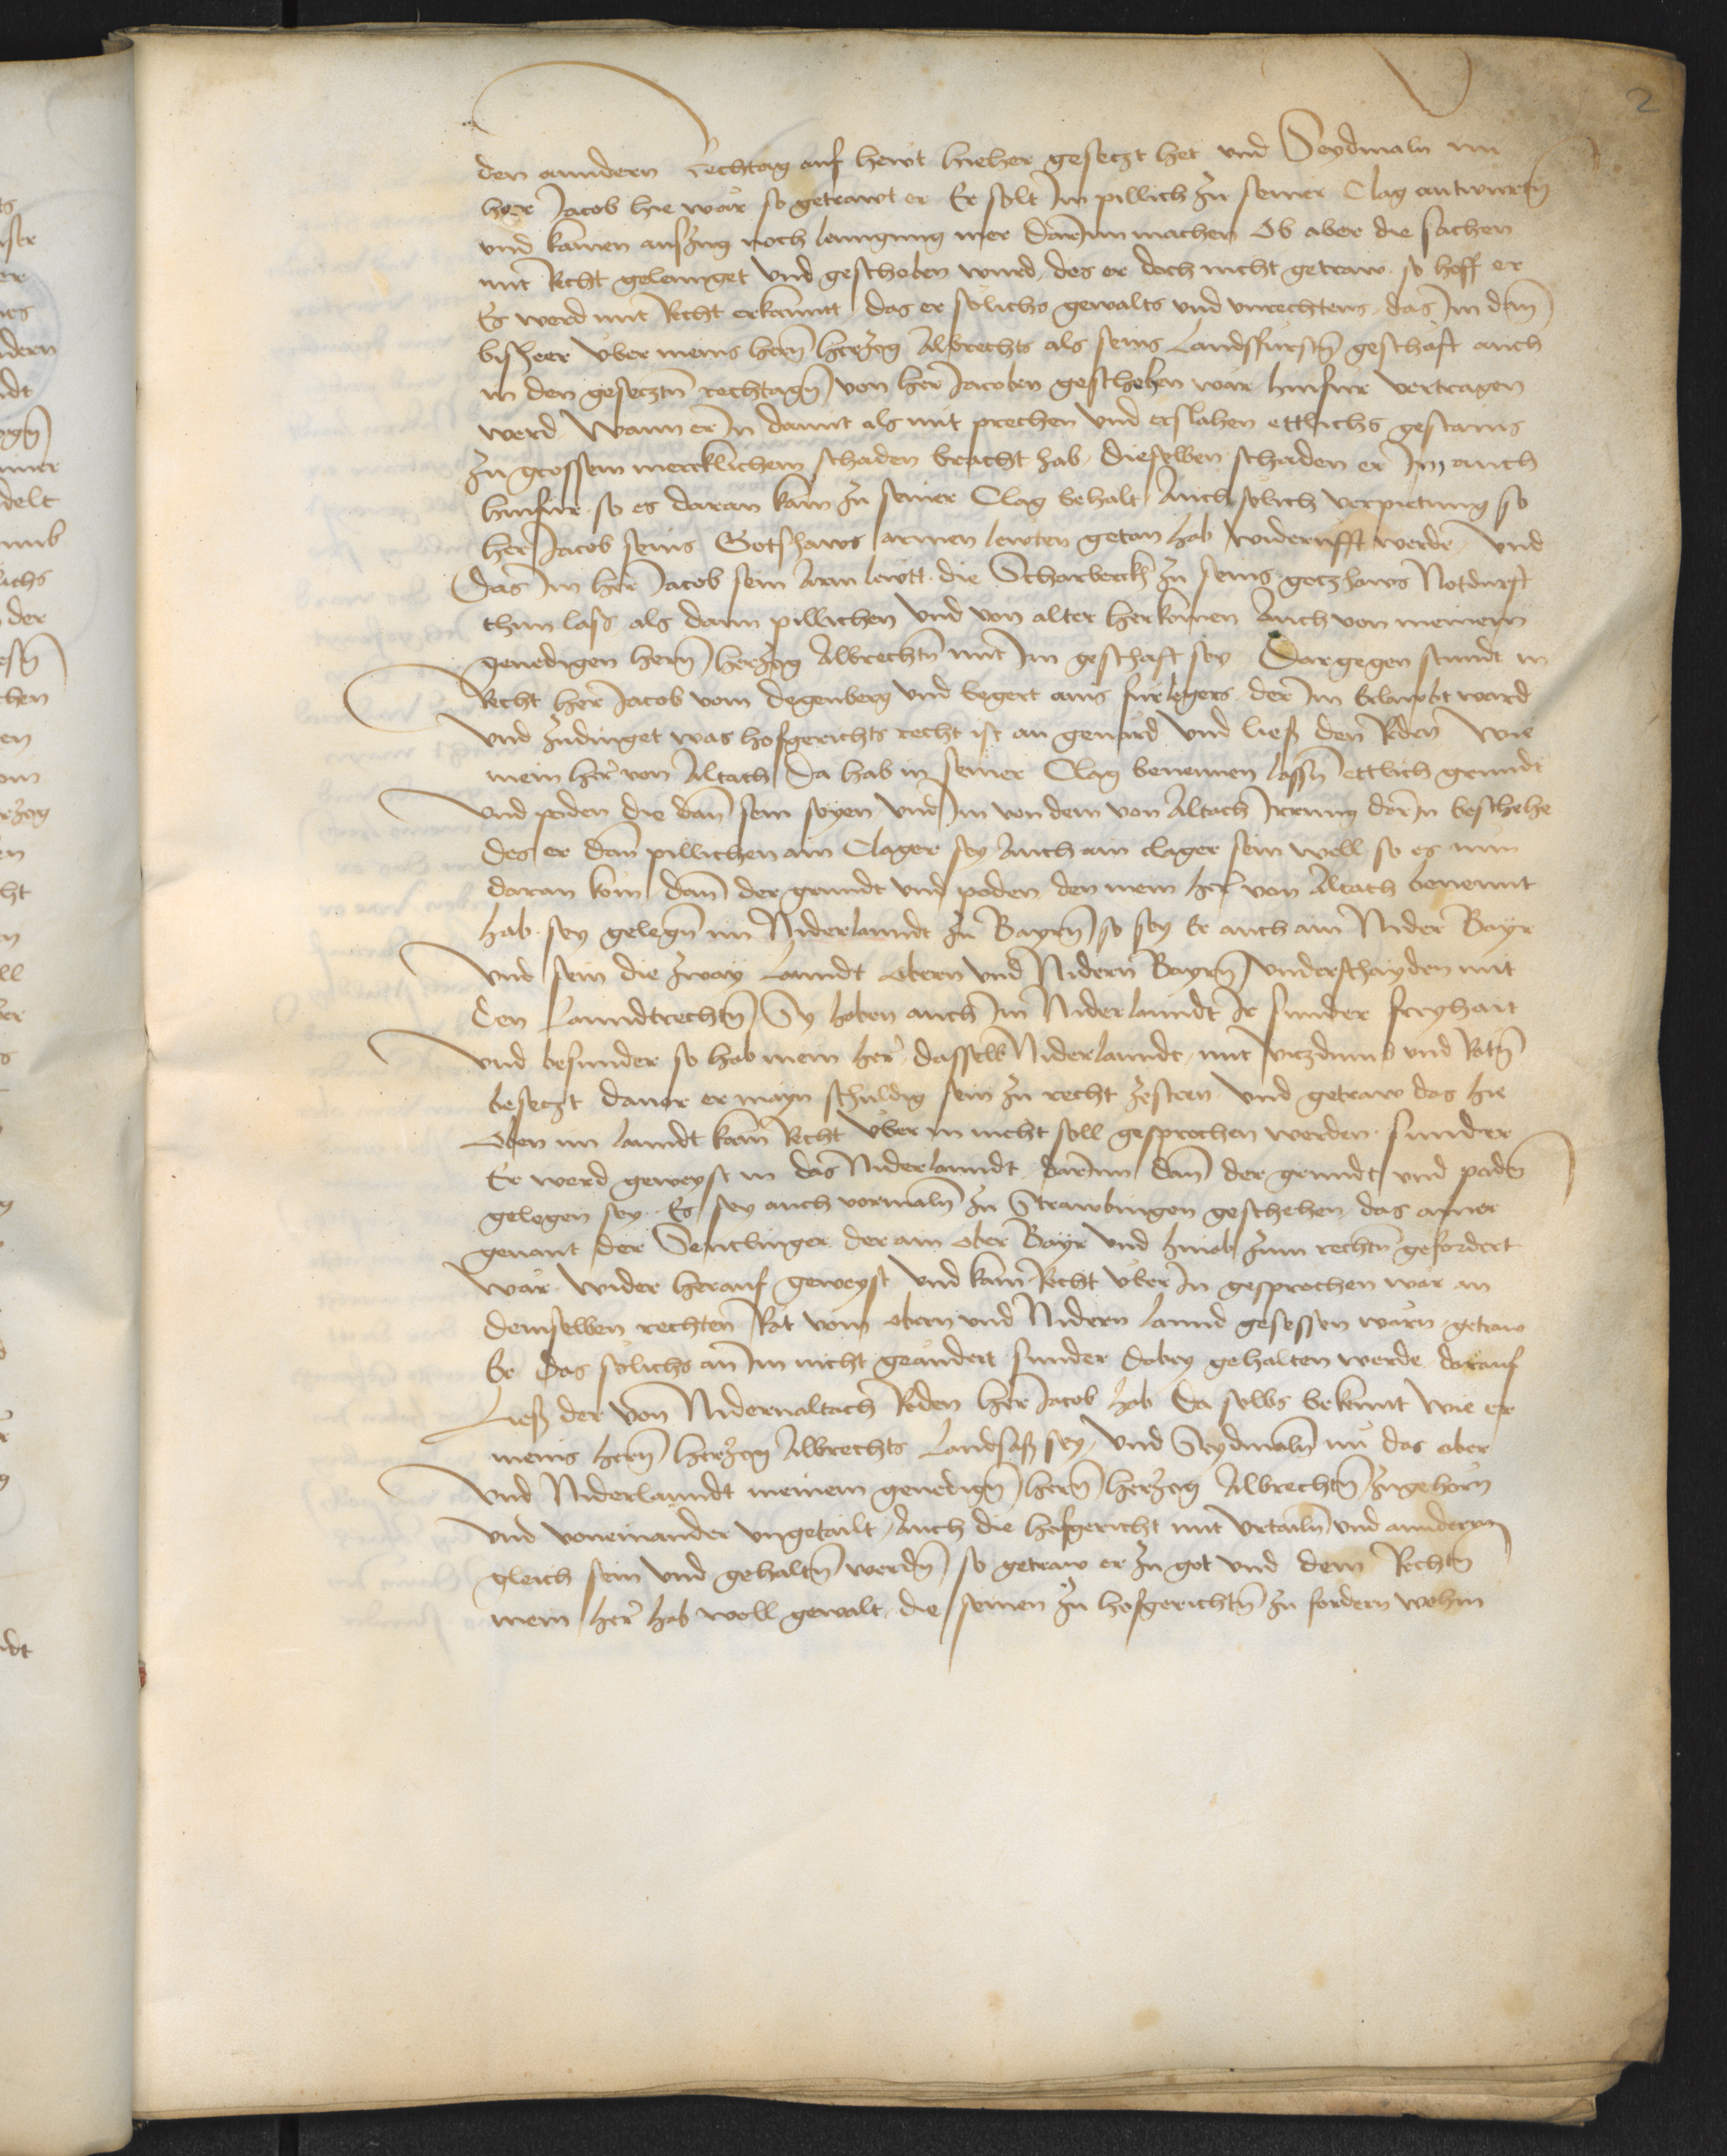 2
den anndern Rechtag auf hewt hieher gesetzt het und Seydmaln nu
her Jacob hie wär so getrawt er Er solt Im pillich zu seiner Clag antwurtn̄
und kainen auszug noch lenngung mer darinn machen Ob aber die sachen
mit Recht gelennget und geschoben wurd des er doch nicht getraw so hoff er
Es werd mit Recht erkannt das er sölichs gewalts und unrechtens das Im dan̄
bisheer uber meins hern̄ herzog Albrechts als seins Landsfürstn̄ geschäft auch
in den gesetztn̄ rechtagn̄ von her Jacoben geschehen wär hinfur vertragen
werd Wann er In damit als mit prechen und erslahen ettlichs gestains
zu grossem mercklichem schaden bracht hab dieselben schaden er Im auch
hinfur so es daran käm zu seiner Clag behalt Auch sölich verpietung so
her Jacob seins Gotshaws armen lewten getan hab widerrufft werde und
das Im her Jacob sein Arm lewtt die Scharberckh zu seins gotzhaws Notdurft
thun lass als dann pillichen und von alter herkömen Auch von meinem
genedigen hern̄ herzog Albrechtn̄ mit Im geschaft sey Dargegen stundt in
Recht her Jacob vom Degenberg und begert ains fürlegers der Im Erlawbt ward
und zudinget was hofgerichts recht ist an genärd und ließ den Reden Wie
mein her von Altach Da hab in seiner Clag benennen lassn̄ ettlich grundt
und poden die dan̄ sein seyen und Im von dem von Altach Irrung darIn beschehe
des er dan̄ pillichen ain Clager sey Auch ain clager sein well so es nun
daran köm dan̄ der grundt und poden den mein her von Altach benennt
hab sey gelegn̄ im Niderlanndt zu Bayrn̄ so sey Er auch ain Nider Bayr
und sein die zway Lanndt obern und Nidern Bayrn̄ underschayden mit
den Lanndtrechtn̄ Sy haben auch Im Niderlanndt Ir sunder freyhait
und besunder so hab mein her dasselb Niderlanndt mit vitzdumb und Rätn̄
besetzt davor er mayn schuldig sein zu recht zesteen und getraw das hie
Oben im lanndt kain Recht über in nicht soll gesprochen werden sunder
Er werd geweyst in das Niderlanndt darinn dan̄ der grundt und poden̄
gelegen sey Es sey auch vormaln̄ zu Strawbingen geschehen das ainer
genant der Sentlinger der ain ober Bayr und hinab zum rechtn̄ gefordert
wär wider herauf geweyst und kain Recht uber In gesprochen wär an
demselben rechten Rät vom obern und Nidern lannd gesessen wärn getraw
Er das sölichs an Im nicht geändert sunder dabey gehalten werde darauf
Liess der von Niderraltach Reden her Jacob hab Da selbs bekennt wie er
meins hern̄ herzog Albrechts Landsaß sey und Seydmaln̄ nu das ober
und Niderlanndt meinem genedign̄ hern̄ herzog Albrechtn̄ zugehörn
und voneinander ungetailt Auch die hofgericht mit urtailn̄ und annderm
gleich sein und gehaltn̄ werdn̄ so getraw er zu got und dem Rechtn̄
mein her hab woll gewalt die seinen zu hofgerichtn̄ zu fordern wohin